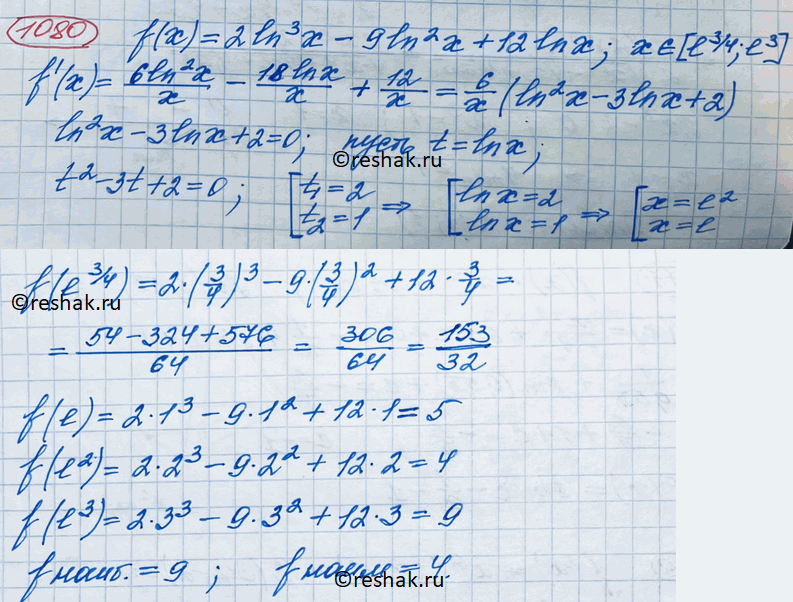 1080 f(x) = 2ln³x − 9ln²x + 12lnx; x∈[e^3/4; e³]
f'(x) = 6ln²x/x − 18lnx/x + 12/x = 6/x (ln²x − 3lnx + 2)
ln²x − 3lnx + 2 = 0; пусть t = lnx;
©reshak.ru
t² − 3t + 2 = 0; [t₁ = 2 t₂ = 1 ⇒ [lnx = 2 lnx = 1 ⇒ [x = e² x = e
f(e^3/4) = 2·(3/4)³ − 9·(3/4)² + 12·3/4 =
©reshak.ru
= (54 − 324 + 576)/64 = 306/64 = 153/32
f(e) = 2·1³ − 9·1² + 12·1 = 5
f(e²) = 2·2³ − 9·2² + 12·2 = 4
f(e³) = 2·3³ − 9·3² + 12·3 = 9
fнаиб. = 9; fнаим = 4.
©reshak.ru